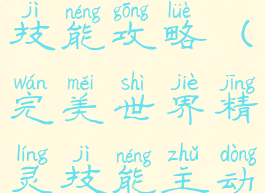 jì néng gōng lüè
技能攻略（
wán měi shì jiè jīng
完美世界精
líng jì néng zhǔ dòng
灵技能主动